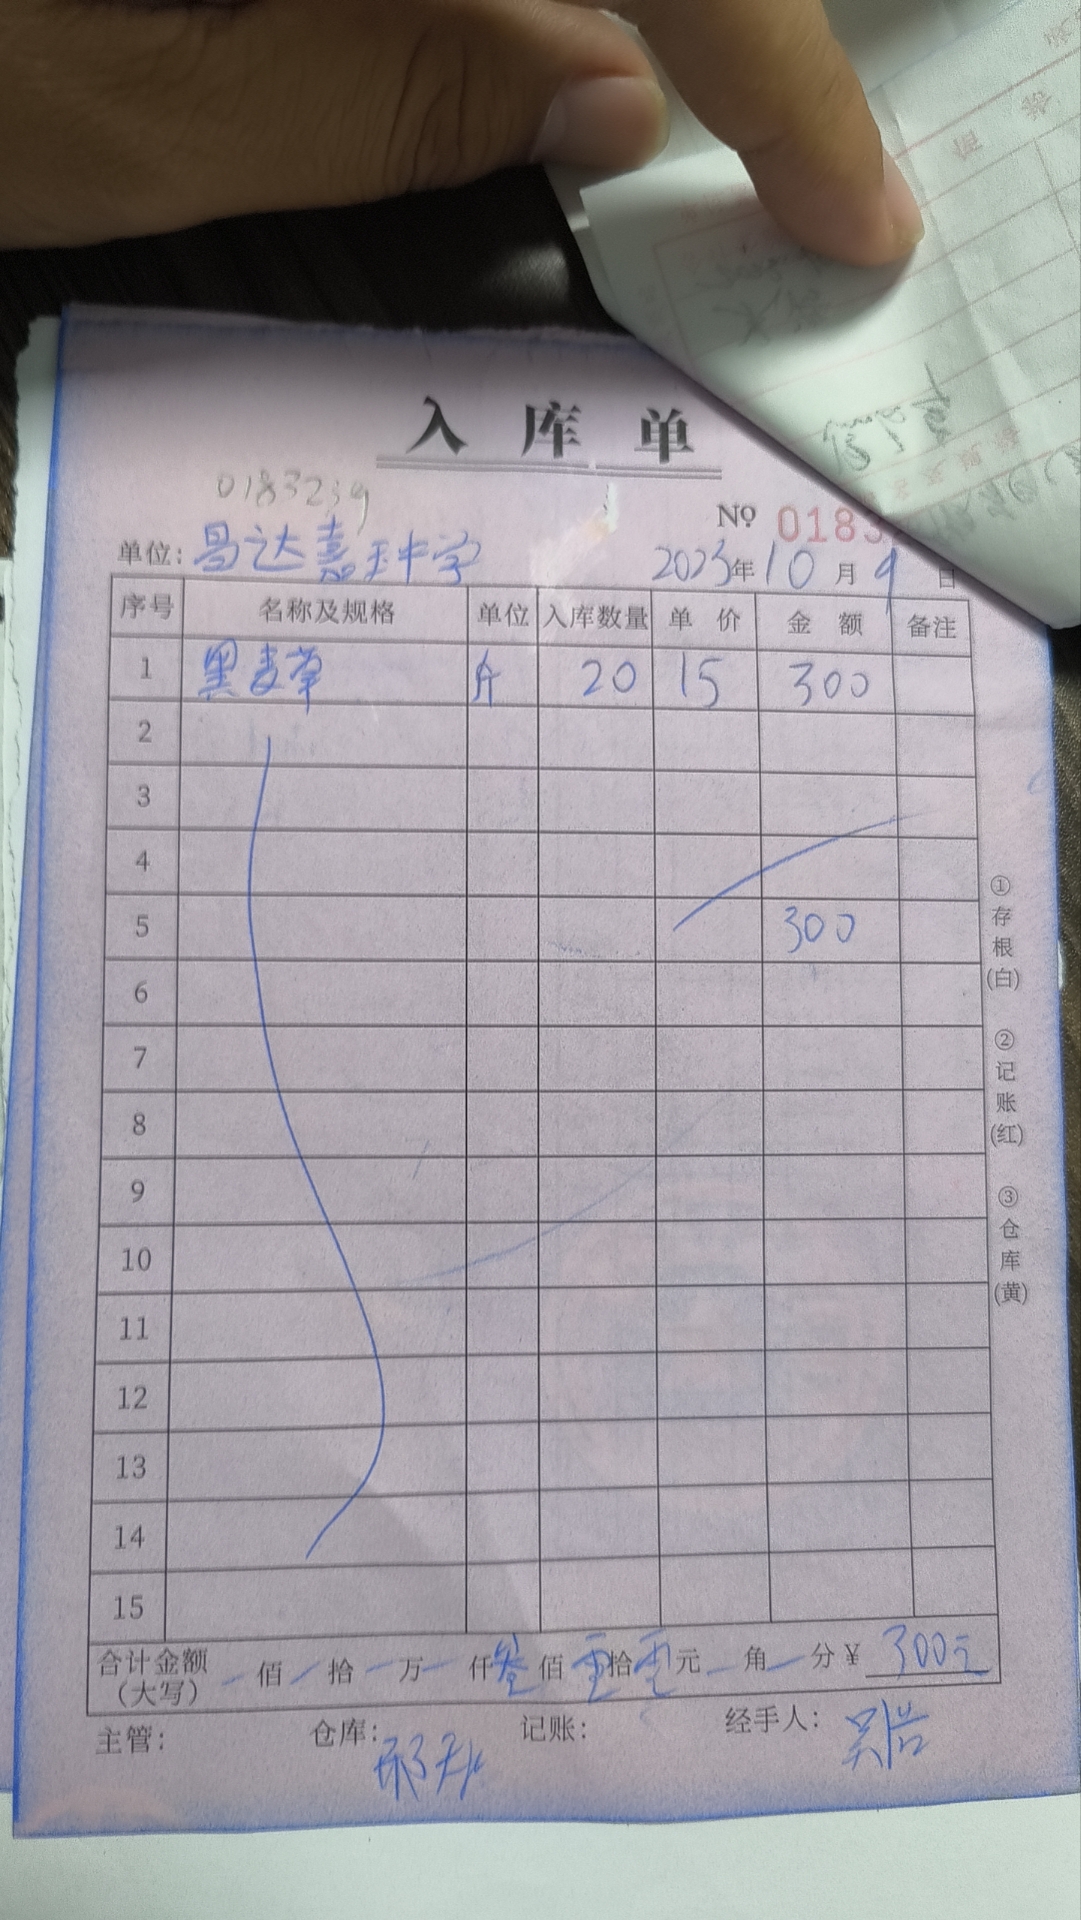 入库单
0183239
№ 0183
单位: 昌达嘉玨中学 2023年10月9日
序号 名称及规格 单位 入库数量 单价 金额 备注
1 黑麦草 斤 20 15 300
2
3
4
5 300
6
7
8
9
10
11
12
13
14
15
①存根(白)
②记账(红)
③仓库(黄)
合计金额(大写) 佰 拾 万 仟 叁佰 零拾 零元 角 分 ¥ 300元
主管: 仓库: 记账: 经手人: